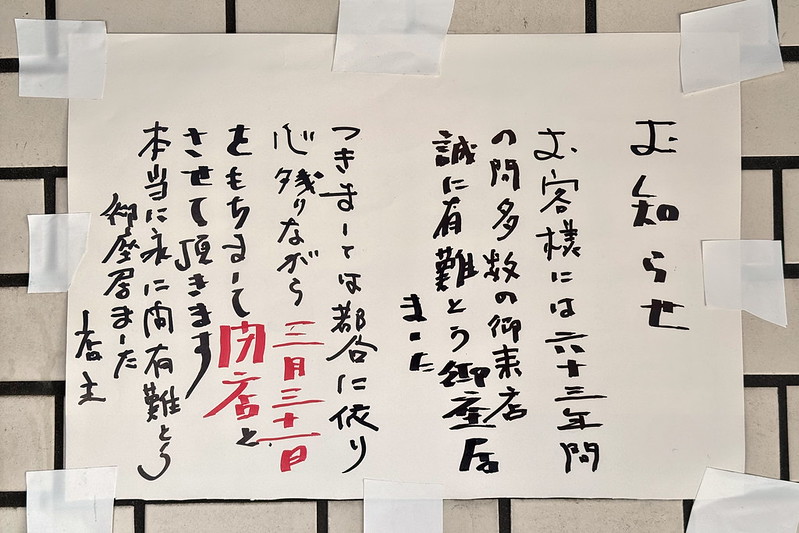 お知らせ
お客様には六十三年間
の間多数の御来店
誠に有難とう御座居
ました
つきましては都合に依り
心残りながら三月三十一日
をもちまして閉店と
させて頂きます
本当に永に間有難とう
御座居ました
店主